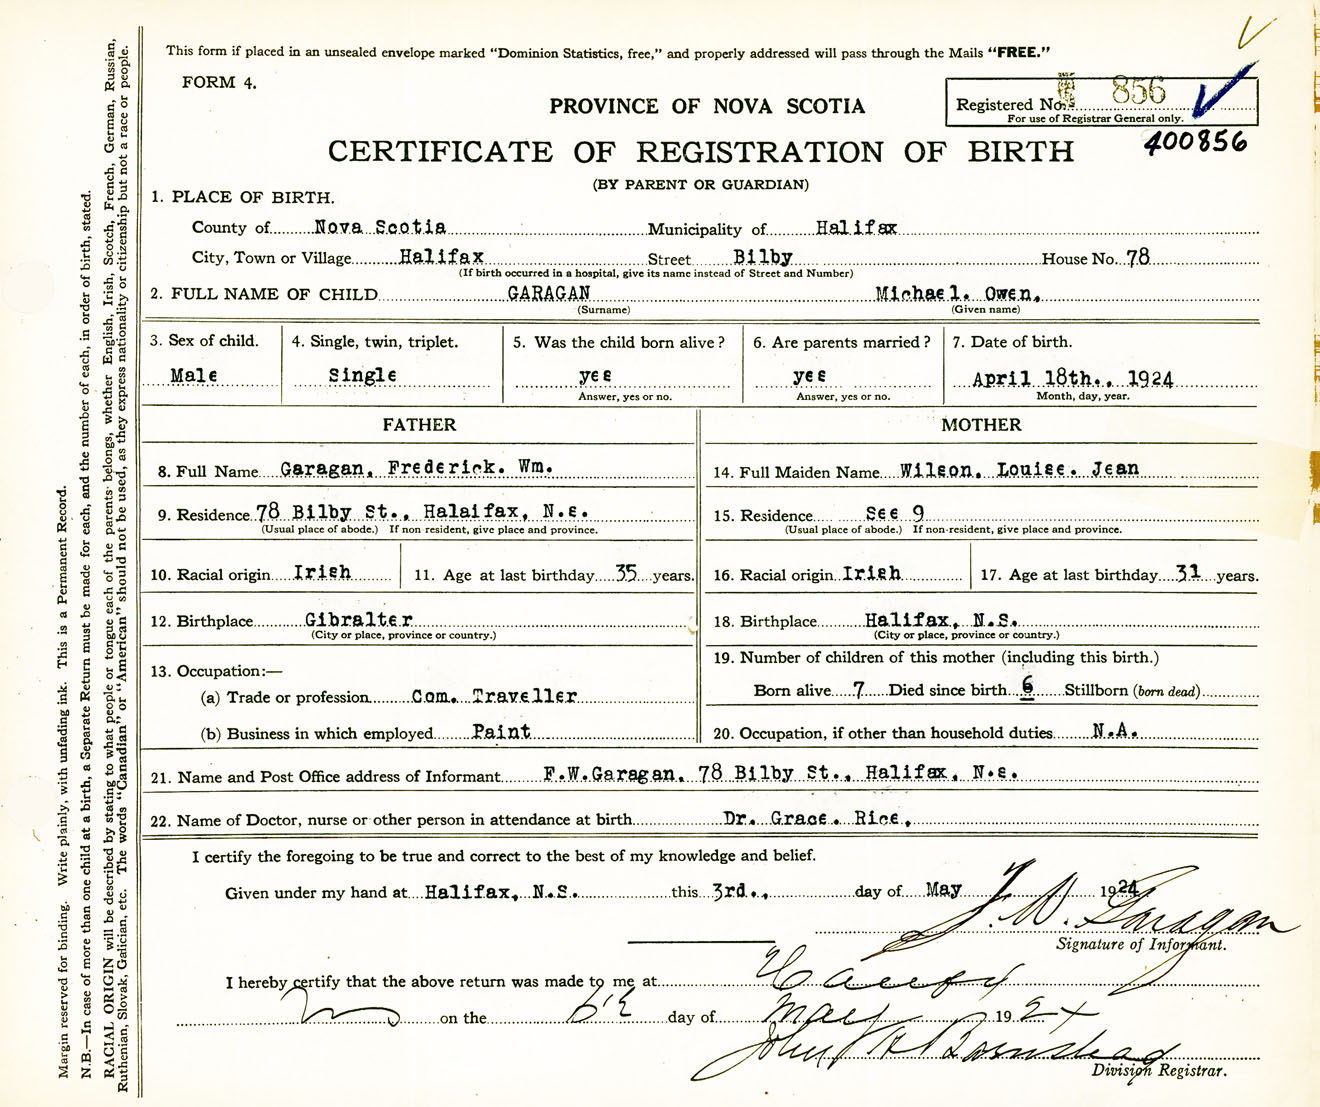 This form if placed in an unsealed envelope marked "Dominion Statistics, free," and properly addressed will pass through the Mails "FREE."
FORM 4.
Registered No. 856
For use of Registrar General only.
400856
PROVINCE OF NOVA SCOTIA
CERTIFICATE OF REGISTRATION OF BIRTH
(BY PARENT OR GUARDIAN)
1. PLACE OF BIRTH.
County of Nova Scotia Municipality of Halifax
City, Town or Village Halifax Street Bilby House No. 78
(If birth occurred in a hospital, give its name instead of Street and Number)
2. FULL NAME OF CHILD GARAGAN Michael. Owen,
(Surname) (Given name)
3. Sex of child. 4. Single, twin, triplet. 5. Was the child born alive? 6. Are parents married? 7. Date of birth.
Male Single yes yes April 18th., 1924
Answer, yes or no. Answer, yes or no. Month, day, year.
FATHER MOTHER
8. Full Name Garagan, Frederick. Wm. 14. Full Maiden Name Wilson, Louise. Jean
9. Residence 78 Bilby St., Halaifax, N.s. 15. Residence See 9
(Usual place of abode.) If non resident, give place and province. (Usual place of abode.) If non-resident, give place and province.
10. Racial origin Irish 11. Age at last birthday 35 years. 16. Racial origin Irish 17. Age at last birthday 31 years.
12. Birthplace Gibralter 18. Birthplace Halifax, N.S.
(City or place, province or country.) (City or place, province or country.)
13. Occupation:— 19. Number of children of this mother (including this birth.)
(a) Trade or profession Com. Traveller Born alive 7 Died since birth 6 Stillborn (born dead)
(b) Business in which employed Paint 20. Occupation, if other than household duties N.A.
21. Name and Post Office address of Informant F.W.Garagan, 78 Bilby St., Halifax, N.s.
22. Name of Doctor, nurse or other person in attendance at birth Dr. Grace. Rice,
I certify the foregoing to be true and correct to the best of my knowledge and belief.
Given under my hand at Halifax, N.S. this 3rd., day of May 1924
F. W. Garagan
Signature of Informant.
I hereby certify that the above return was made to me at
on the day of May 1924
John
Division Registrar.
Margin reserved for binding. Write plainly, with unfading ink. This is a Permanent Record.
N.B.—In case of more than one child at a birth, a Separate Return must be made for each, and the number of each, in order of birth, stated.
RACIAL ORIGIN will be described by stating to what people or tongue each of the parents belongs, whether English, Irish, Scotch, French, German, Russian,
Ruthenian, Slovak, Galician, etc. The words "Canadian" or "American" should not be used, as they express nationality or citizenship but not a race or people.